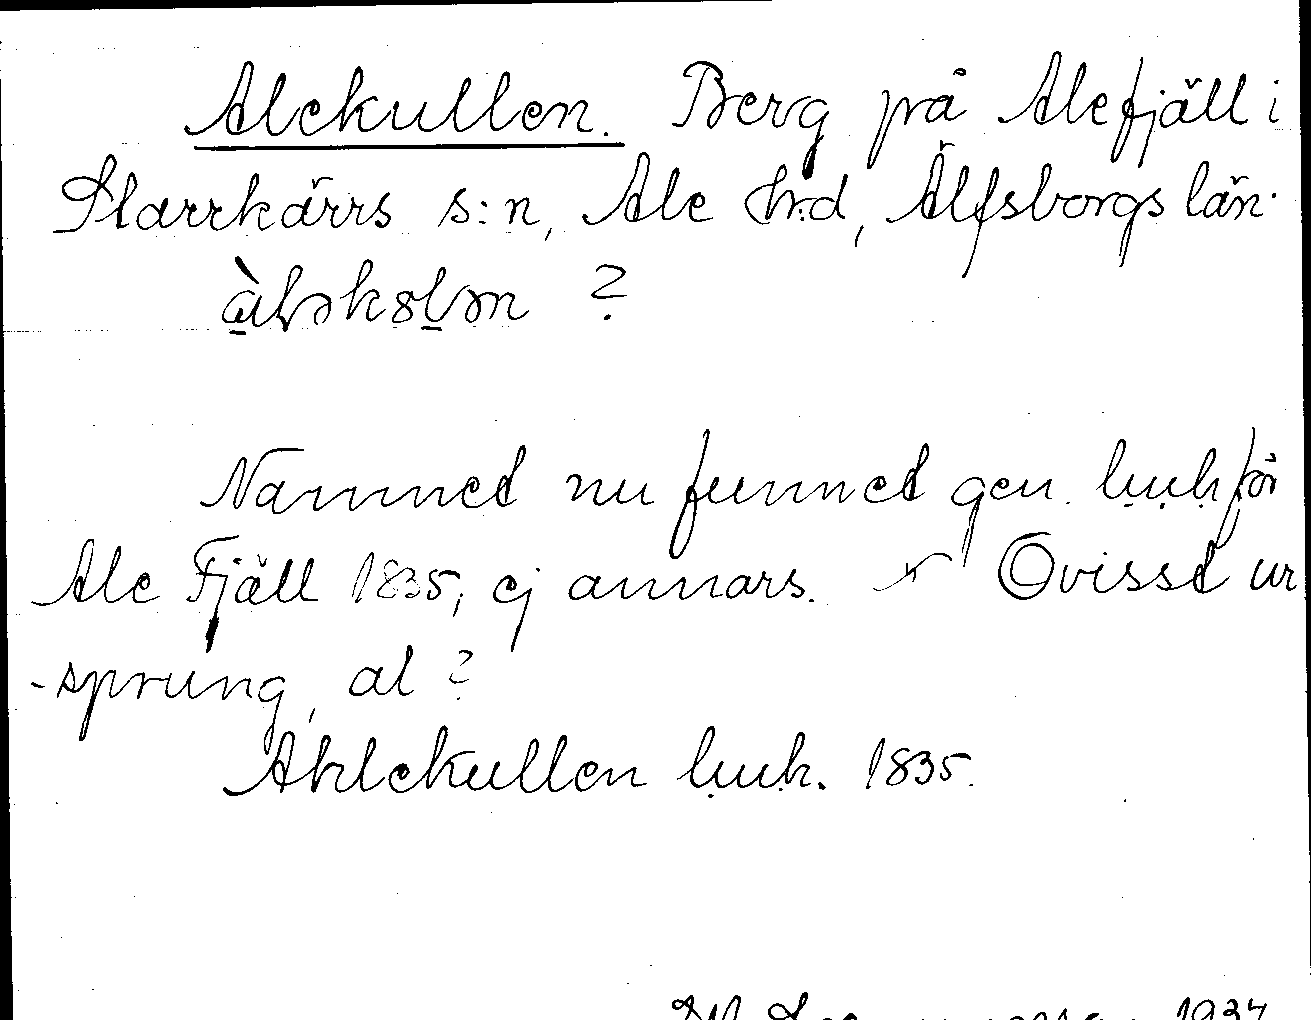 Alekullen. Berg på Alefjäll i
Starrkärrs s:n, Ale hrd, Älfsborgs län.
?
Namnet nu funnet gen. l.u.k. för
Ale Fjäll 1835; ej annars. Ovisst ur
-sprung, al ?
Ahlekullen l.u.k. 1835.
1934